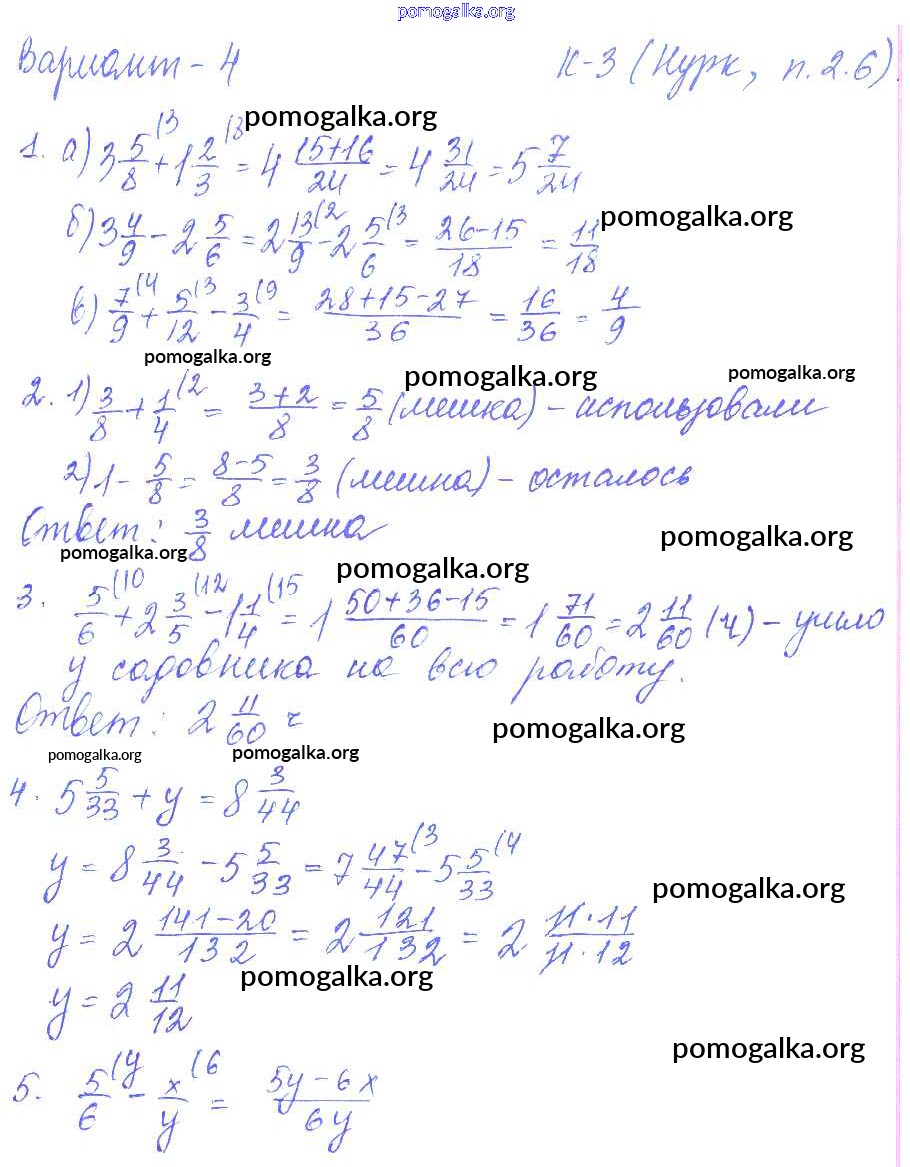 pomogalka.org
Вариант - 4 К-3 (Нурк, п. 2.6)
pomogalka.org
1. а) 3 5/8 (3 + 1 2/3 (8 = 4 (15+16)/24 = 4 31/24 = 5 7/24
pomogalka.org
б) 3 4/9 - 2 5/6 = 2 13/9 (2 - 2 5/6 (3 = (26-15)/18 = 11/18
в) 7/9 (4 + 5/12 (3 - 3/4 (9 = (28+15-27)/36 = 16/36 = 4/9
pomogalka.org pomogalka.org pomogalka.org
2. 1) 3/8 + 1/4 (2 = (3+2)/8 = 5/8 (мешка) - использовали
2) 1 - 5/8 = (8-5)/8 = 3/8 (мешка) - осталось
Ответ: 3/8 мешка
pomogalka.org pomogalka.org pomogalka.org
3. 5/6 (10 + 2 3/5 (12 - 1 1/4 (15 = 1 (50+36-15)/60 = 1 71/60 = 2 11/60 (ч) - ушло
у садовника на всю работу.
Ответ: 2 11/60 ч
pomogalka.org
pomogalka.org pomogalka.org
4. 5 5/33 + y = 8 3/44
y = 8 3/44 - 5 5/33 = 7 47/44 (3 - 5 5/33 (4
pomogalka.org
y = 2 (141-20)/132 = 2 121/132 = 2 (11·11)/(11·12)
pomogalka.org
y = 2 11/12
pomogalka.org
5. 5/6 (y - x/y (6 = (5y-6x)/6y